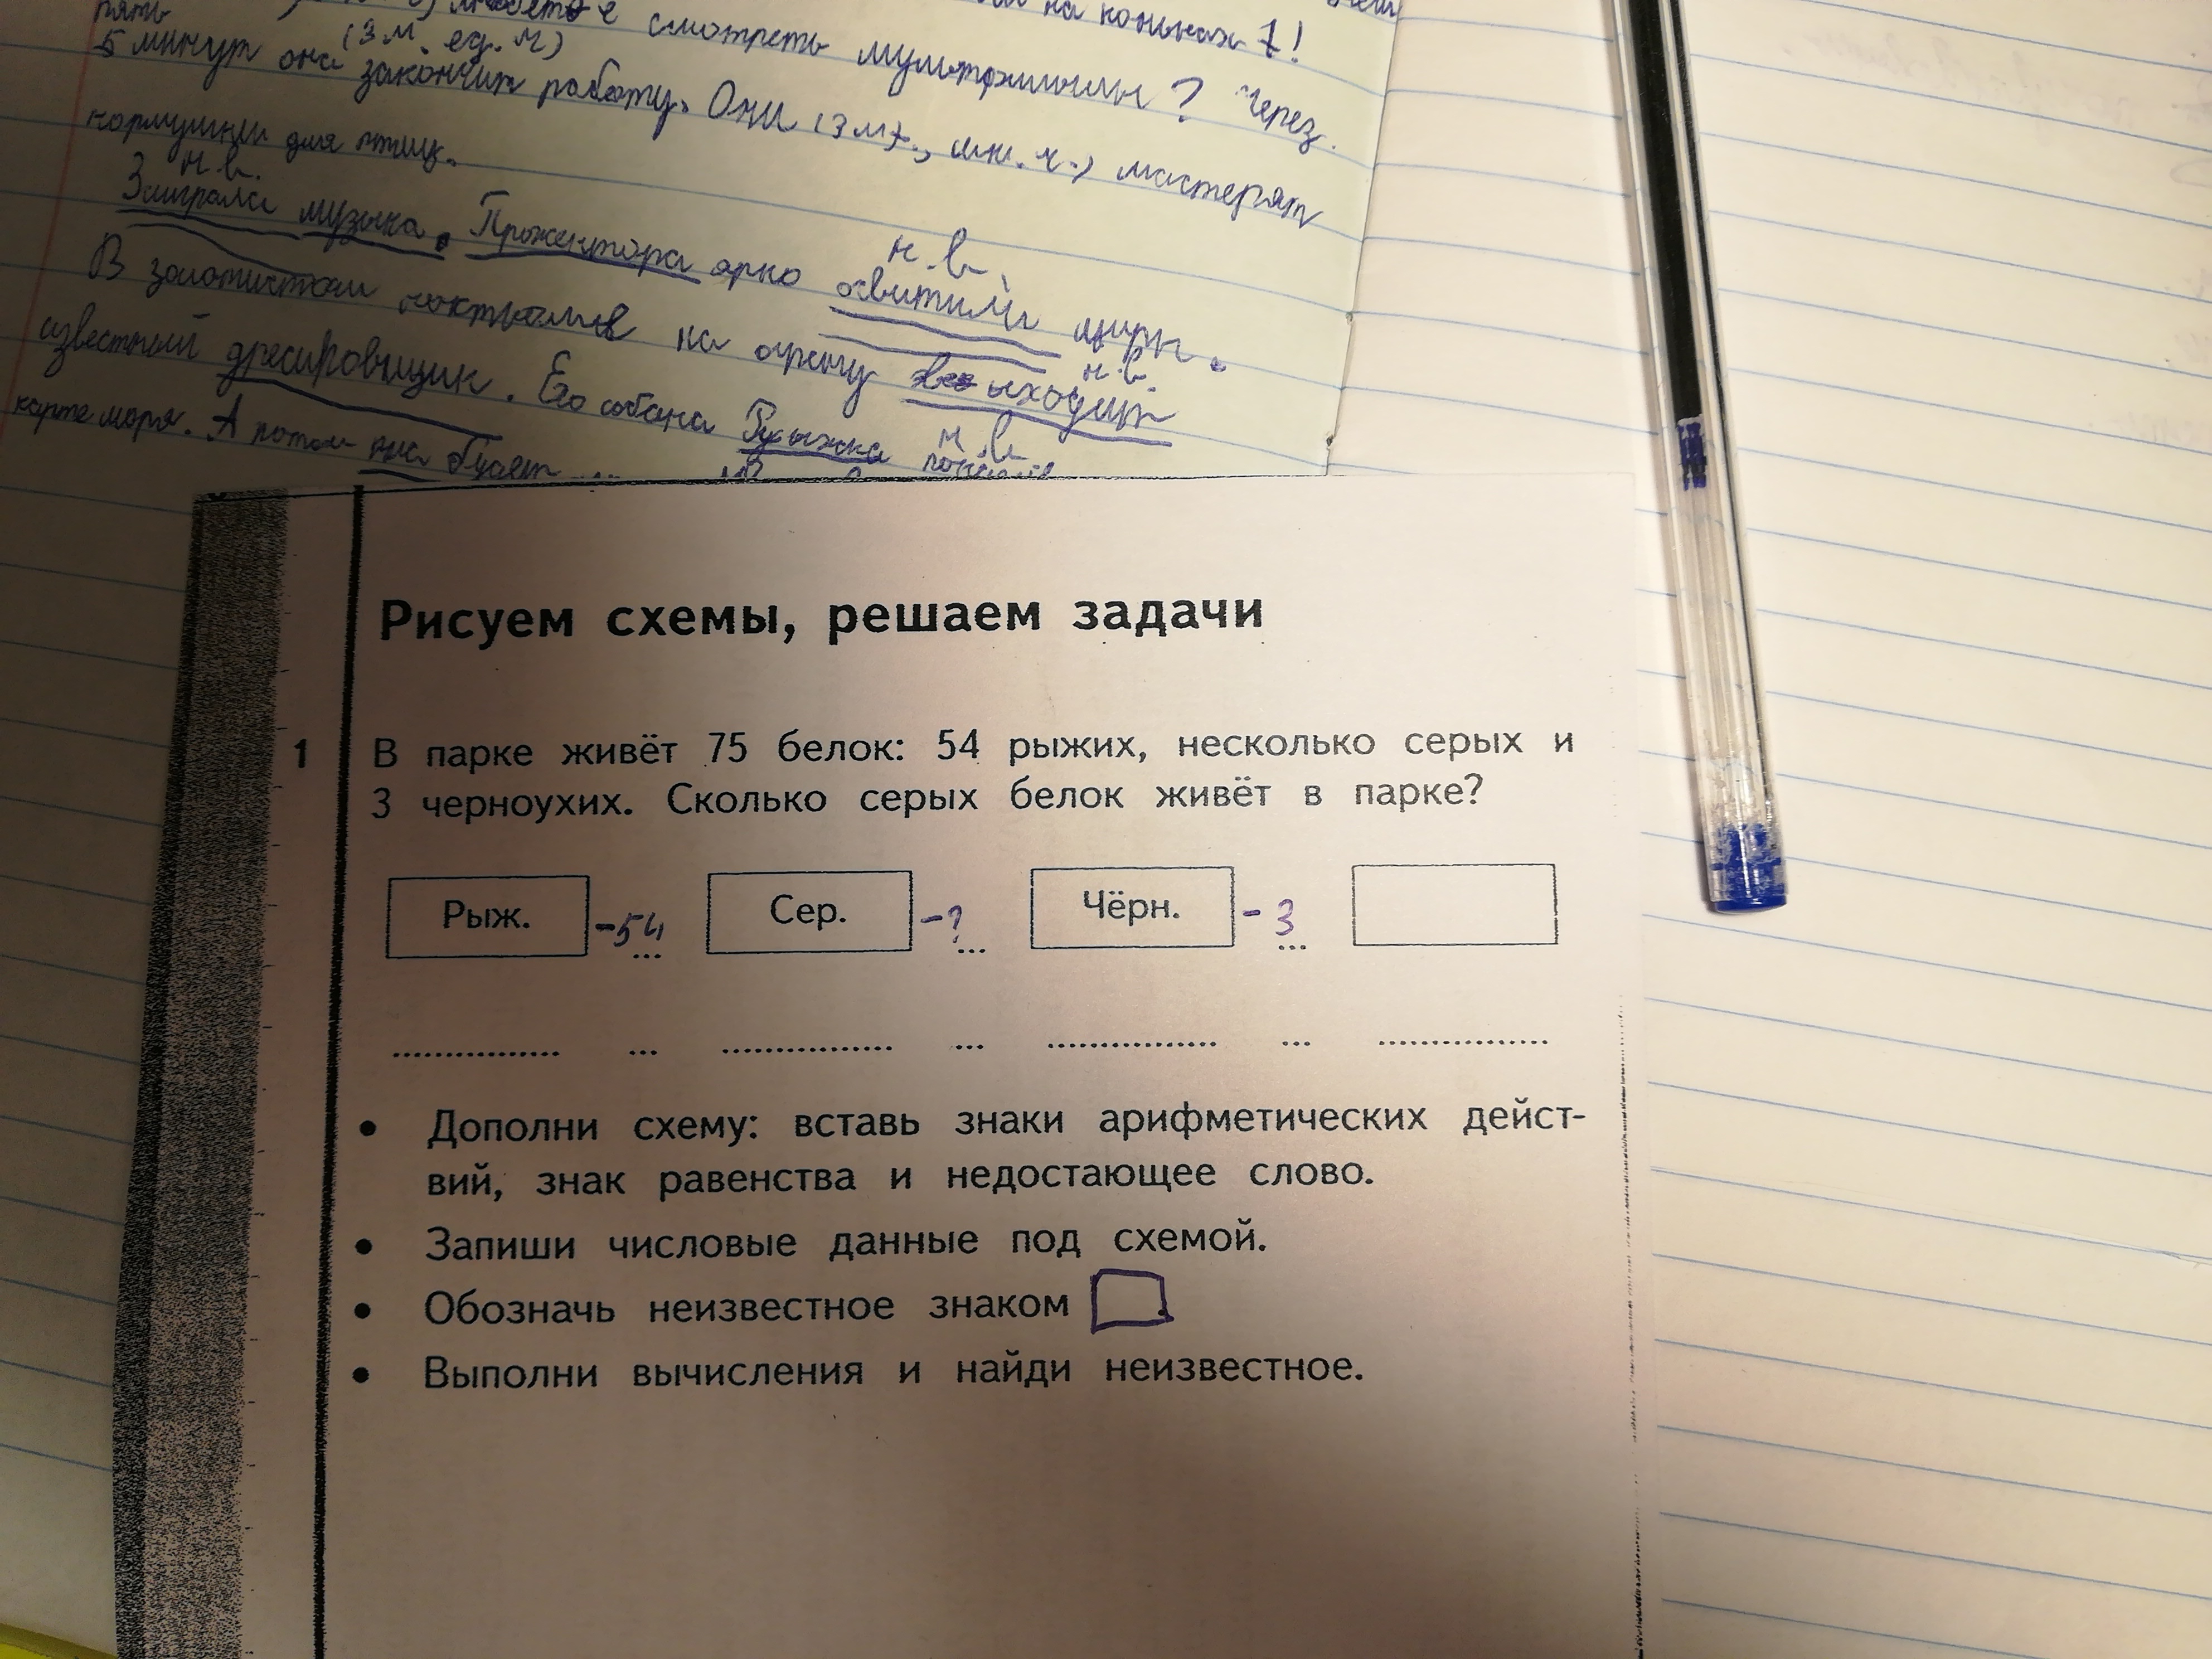 на коньках 1!
(3 м. ед. ч) смотреть мультфильмы? Через
5 минут она закончит работу. Они (3 м., мн. ч.) мастерят
кормушки для птиц.
н.в.
Заиграла музыка. Прожектора ярко
н.в.
В золотистом на арену
н.в.
известный дресировщик. Его собака
н в
карте моря. А потом нас будет
Рисуем схемы, решаем задачи
1 В парке живёт 75 белок: 54 рыжих, несколько серых и
3 черноухих. Сколько серых белок живёт в парке?
Рыж. -54 ... Сер. -? ... Чёрн. - 3 ...
............... ... ............... ... ............... ... ...............
• Дополни схему: вставь знаки арифметических дейст-
вий, знак равенства и недостающее слово.
• Запиши числовые данные под схемой.
• Обозначь неизвестное знаком .
• Выполни вычисления и найди неизвестное.